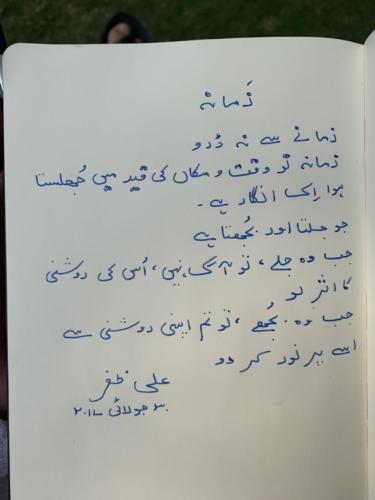 زمانہ
زمانے سے نہ ڈرو
زمانہ تو وقت و مکاں کی قید میں جُھلستا
ہوا اِک انگار ہے۔
جو جلتا اور بُجھتا ہے
جب وہ جلے، تو آگ نہیں، اُس کی روشنی
کا اثر لو
جب وہ بُجھے، تو تم اپنی روشنی سے
اسے پر نور کر دو
علی ظفر
۳۰ جولائی ۲۰۱۷